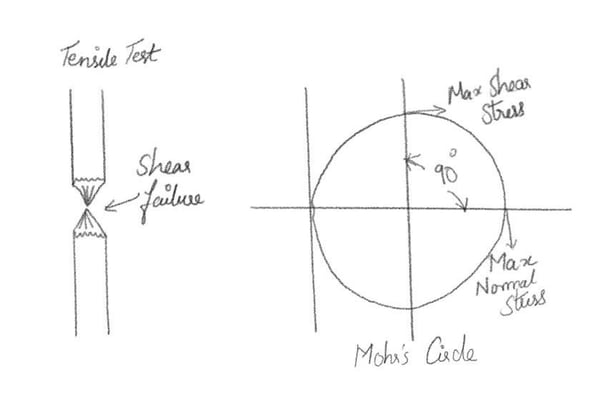 Tensile Test
Shear
failure
Max Shear
Stress
90°
Max
Normal
Stress
Mohr's Circle